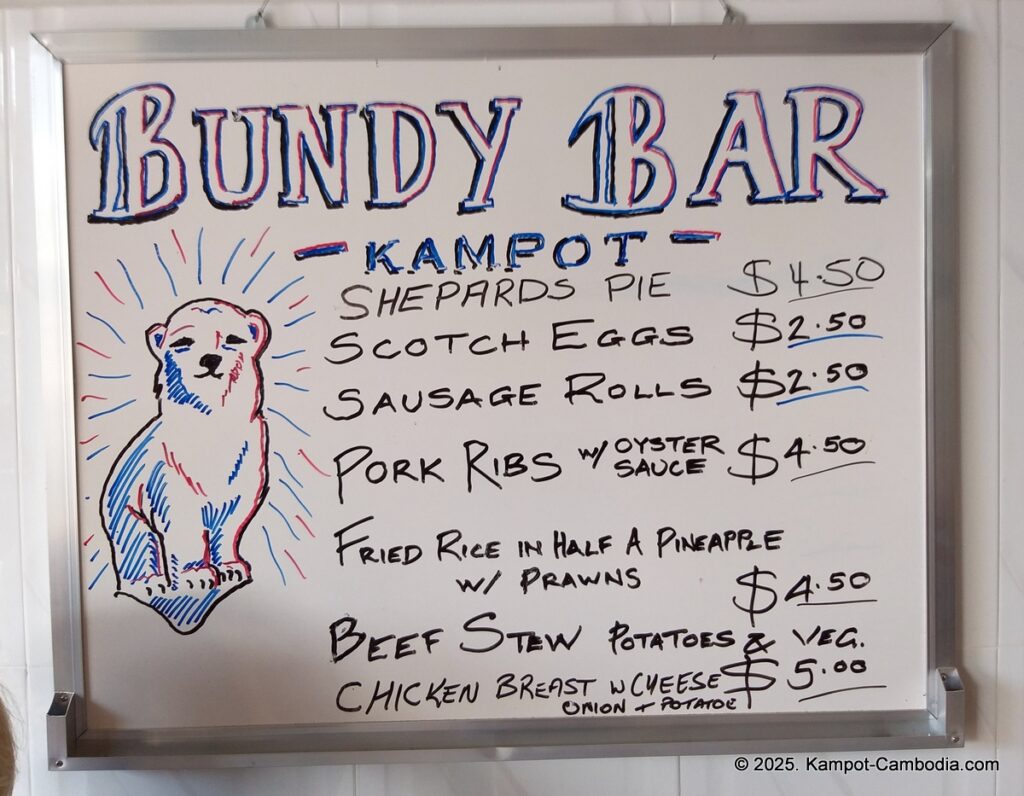 BUNDY BAR
- KAMPOT -
SHEPARDS PIE $4.50
SCOTCH EGGS $2.50
SAUSAGE ROLLS $2.50
PORK RIBS W/ OYSTER SAUCE $4.50
FRIED RICE IN HALF A PINEAPPLE
W/ PRAWNS $4.50
BEEF STEW POTATOES & VEG.
CHICKEN BREAST W CHEESE $5.00
ONION + POTATOE
© 2025. Kampot-Cambodia.com